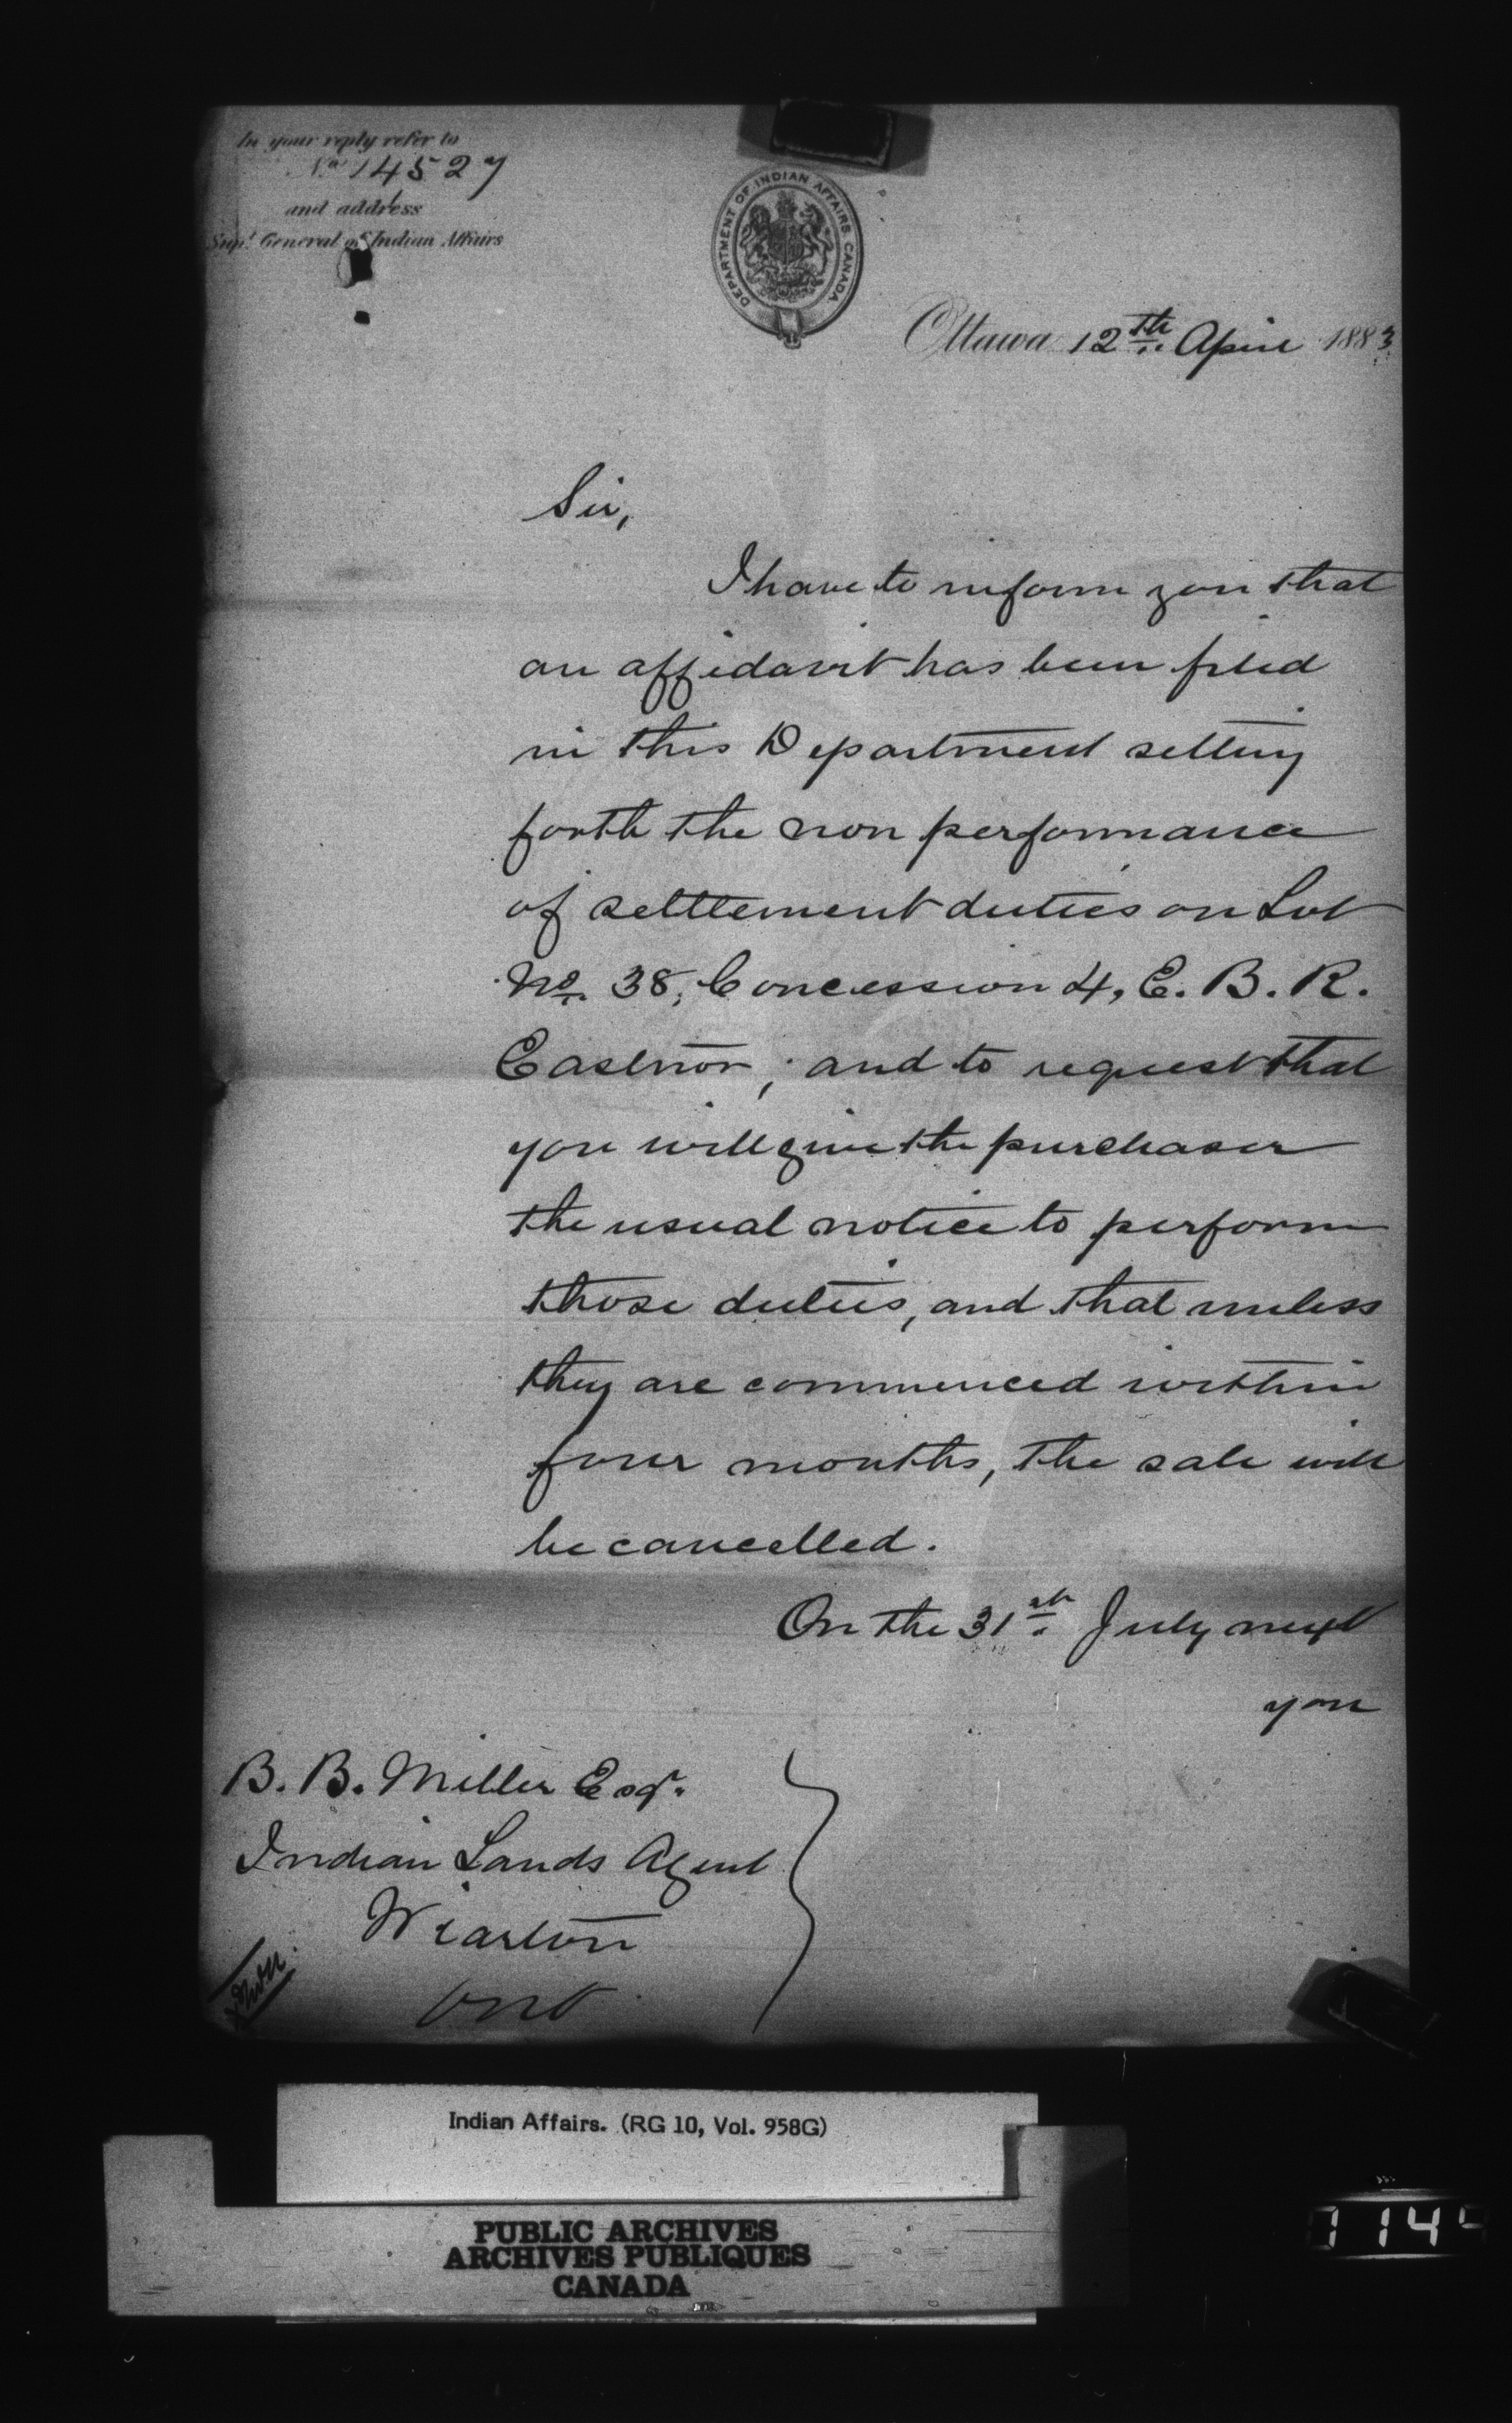 In your reply refer to
No 14527
and address
Supt General of Indian Affairs
DEPARTMENT OF INDIAN AFFAIRS. CANADA
Ottawa 12th April 1883
Sir,
I have to inform you that
an affidavit has been filed
in this Department setting
forth the non performance
of settlement duties on Lot
No. 38, Concession 4, E. B. R.
Eastnor, and to request that
you will give the purchaser
the usual notice to perform
those duties, and that unless
they are commenced within
four months, the sale will
be cancelled.
On the 31st July next
you
B. B. Miller Esqr.
Indian Lands Agent
Wiarton
Ont
Indian Affairs. (RG 10, Vol. 958G)
PUBLIC ARCHIVES
ARCHIVES PUBLIQUES
CANADA